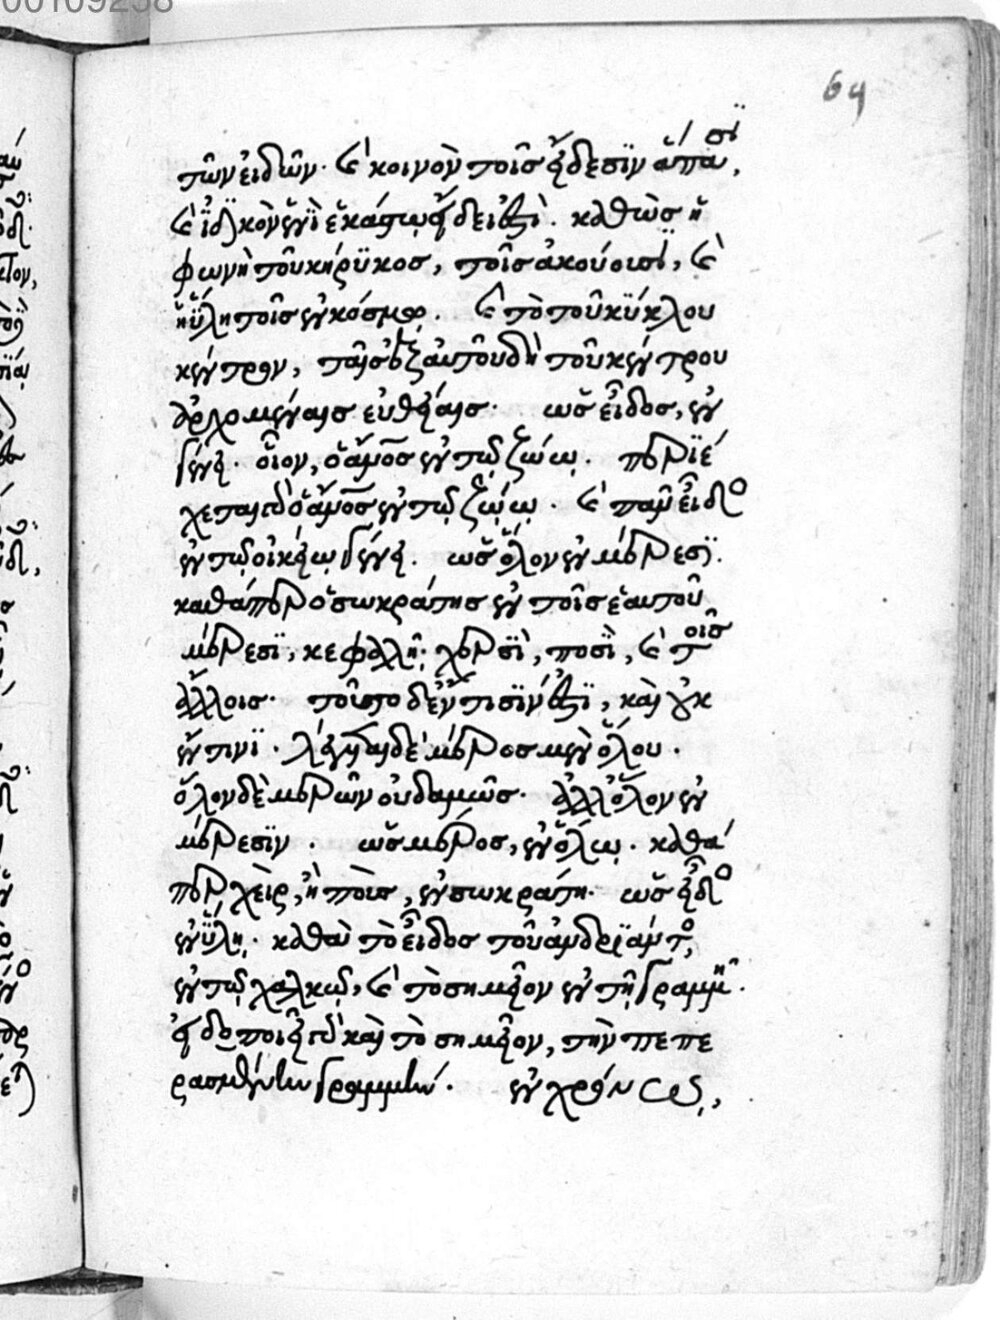 00109258
64
τῶν εἰδῶν. καὶ κοινὸν τοῖς εἴδεσϊν ἅπασϊ,
καὶ ἰδικὸν ἑνῒ ἑκάστῳ εἴδει ἐστὶ. καθὼς ἡ
φωνὴ τοῦ κήρϋκος, τοῖς ἀκούουσϊ, καὶ
ἡ ὕλη τοῖς ἐν κόσμῳ. καὶ τὸ τοῦ κϋκλου
κέντρον, ταῖς ἐξ αὐτοῦ δὴ τοῦ κέντρου
ἀρχομέναις εὐθείαις. ὡς εἶδος, ἐν
γένει. οἷον, ὁ ἄνος ἐν τῷ ζώῳ. περϊέ
χεται γὰρ ὁ ἄνος ἐν τῷ ζώῳ. καὶ πᾶν εἶδος
ἐν τῷ οἰκείῳ γένει. ὡς ὅλον ἐν μέρεσϊ.
καθάπερ ὁ σωκράτης ἐν τοῖς ἑαυτοῦ
μέρεσϊ, κεφαλῇ. χερσϊ, ποσϊ, καὶ τοῖς
ἄλλοις. τοῦτο δ' ἔν τισϊν ἐστϊ, καὶ οὐκ
ἔν τινϊ. λέγεται δὲ μέρος μὲν ὅλου.
ὅλον δὲ μερῶν οὐδαμῶς. ἀλλ' ὅλον ἐν
μέρεσϊν. ὡς μέρος, ἐν ὅλῳ. καθά
περ χεὶρ, ἢ ποὺς, ἐν σωκράτη. ὡς εἶδος
ἐν ὕλῃ. καθὰ τὸ εἶδος τοῦ ἀνδρϊάντος,
ἐν τῷ χαλκῷ, καὶ τὸ σημεῖον ἐν τῇ γραμμῇ.
εἰδοποιεῖ γὰρ καὶ τὸ σημεῖον, τὴν πεπε
ρασμένην γραμμήν. ἐν χρόνῳ